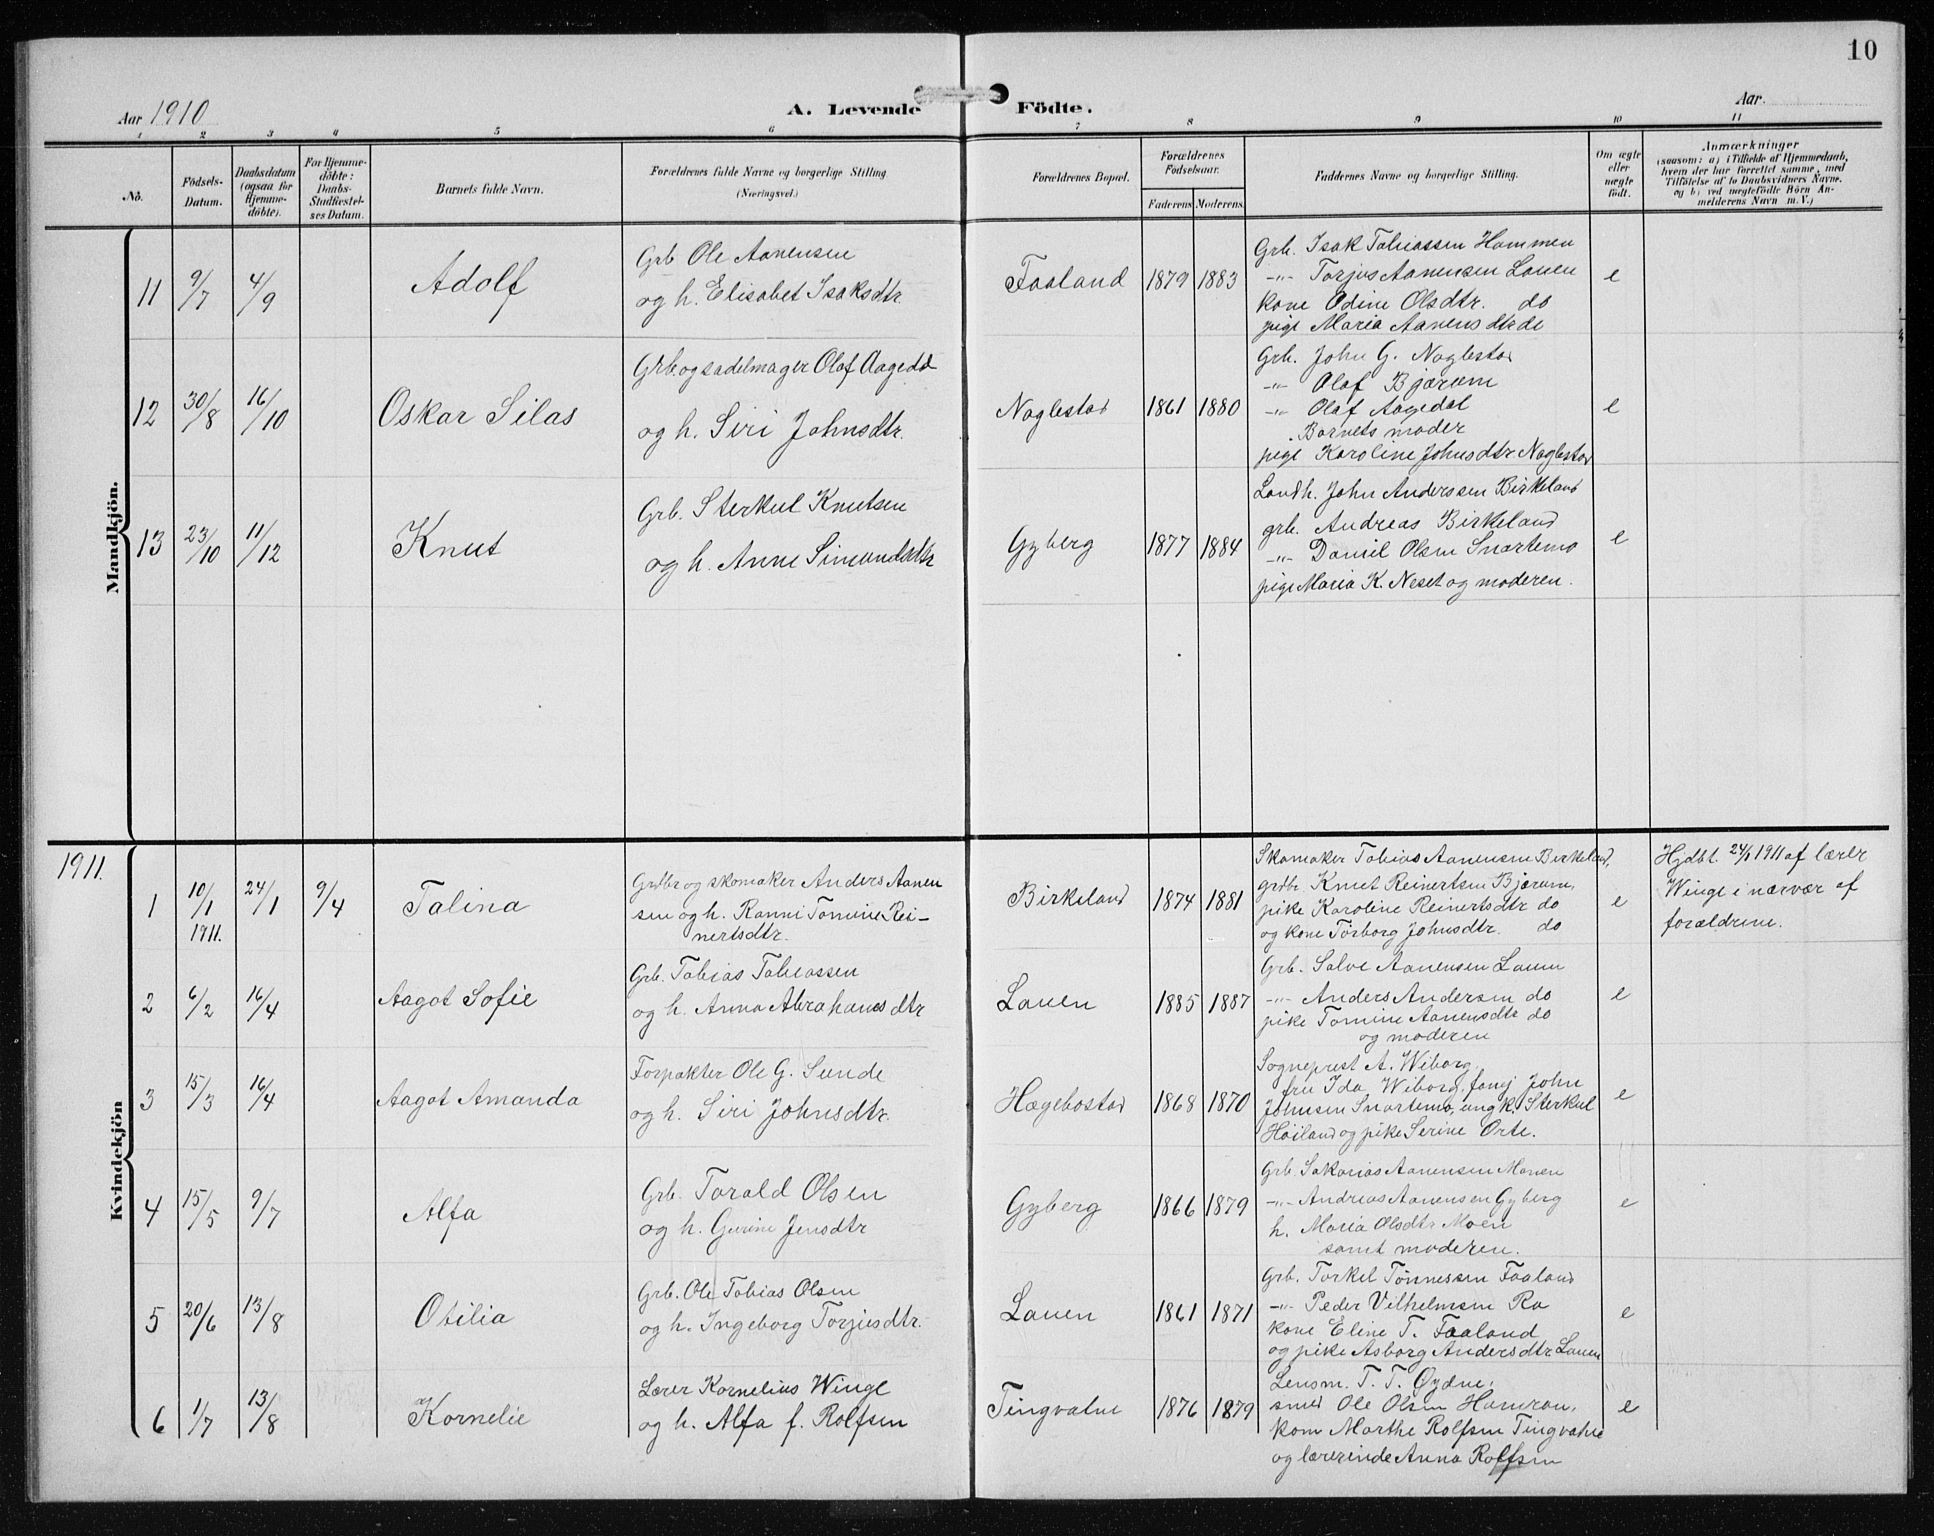 10
Aar 1910
A. Levende Födte.
Aar.
1 2 3 4 5 6 7 8 9 10 11
No.
Födsels-Datum.
Daabsdatum (ogsaa for Hjemme-döbte).
For Hjemme-döbte: Daabs-Stadfæstel-ses Datum.
Barnets fulde Navn.
Forældrenes fulde Navne og borgerlige Stilling (Næringsvei.)
Forældrenes Bopæl.
Forældrenes Födselsaar.
Faderens
Moderens.
Faddernes Navne og borgerlige Stilling.
Om ægte eller uægte født.
Anmærkninger
(saasom: a) i Tilfælde af Hjemmedaab,
hvem der har forrettet samme, med
Tilføielse af to Daabsvidners Navne.
og b) ved uægtefødte Börn An-
melderens Navn m. V.)
Mandkjön.
11 9/7 4/9 Adolf
Grb Ole Aanensen
og h. Elisabet Isaksdtr.
Faaland 1879 1883
Grb. Isak Tobiassen Hommen
-"- Torjus Aanensen Lauen
kone Odine Olsdtr. do
pige Maria Aanensdtr do
e
12 30/8 16/10 Oskar Silas
Grb og sadelmager Olaf Aagedal
og h. Siri Johnsdtr.
Naglestad 1861 1880
Grb. John G. Naglestad
-"- Olaf Bjærum
-"- Olaf Aagedal
Barnets moder
pige Karoline Johnsdtr Naglestad
e
13 23/10 11/12 Knut
Grb. Sterkul Knutsen
og h. Anne Simundsdtr
Gyberg 1877 1884
Landh. John Anderssen Birkeland
grb. Andreas Birkeland
-"- Daniel Olsen Snartemo
pige Maria K. Neset og moderen.
e
1911.
Kvindekjön
1 10/1 1911. 24/1 9/4 Talina
Grdbr og skomaker Anders Aanen
sen og h. Ranni Tomine Rei-
nertsdtr.
Birkeland 1874 1881
Skomaker Tobias Aanensen Birkeland,
grdbr. Knut Reinertsen Bjærum,
pike Karoline Reinertsdtr do
og kone Torborg Johnsdtr. do
e
Hjdbt. 24/1 1911 af lærer
Winge i nærvær af
forældrene.
2 6/2 16/4 Aagot Sofie
Grb. Tobias Tobiassen
og h. Anna Abrahamsdtr
Lauen 1885 1887
Grb. Salve Aanensen Lauen
-"- Anders Andersen do
pike Tomine Aanensdtr do
og moderen
e
3 15/3 16/4 Aagot Amanda
Forpakter Ole G. Sunde
og h. Siri Johnsdtr.
Hægebostad 1868 1870
Sogneprest A. Wiborg,
fru Ida Wiborg, fanej John
Johnsen Snartemo, ungk. Sterkul
Høiland og pike Serine Orte.
e
4 15/5 9/7 Alfa
Grb. Torald Olsen
og h. Gurine Jensdtr
Gyberg 1866 1879
Grb. Sakarias Aanensen Monen
-"- Andreas Aanensen Gyberg
h. Maria Olsdtr Moen
samt moderen.
e
5 20/6 13/8 Otilia
Grb. Ole Tobias Olsen
og h. Ingeborg Torjusdtr.
Lauen 1861 1871
Grb. Torkel Tønnessen Faaland
-"- Peder Vilhelmsen Ro
kone Eline T. Faaland
og pike Asborg Andersdtr Lauen
e
6 1/7 13/8 Kornelie
Lærer Kornelius Winge
og h. Alfa f. Rolfsen
Tingvatne 1876 1879
Lensm. T. T. Øydne,
smed Ole Olsen Hamran,
kone Marthe Rolfsen Tingvatne
og lærerinde Anna Rolfsen
e